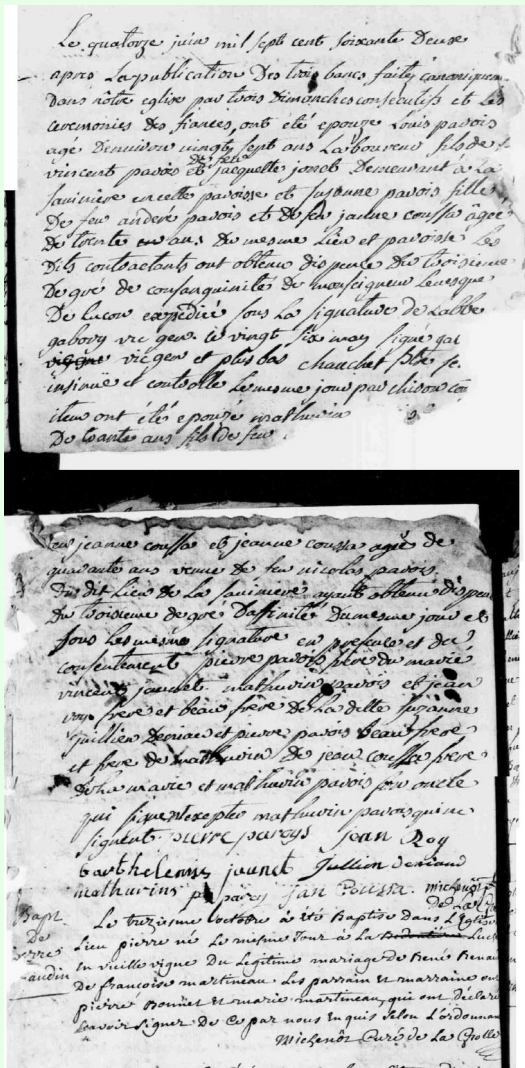 Le quatorze juin mil sept cent soixante Deux
apres La publication Des trois bancs faites canoniquem
Dans nôtre eglise par trois Dimanches consecutifs et Les
ceremonies des fiances, ont été epouzé Louis parois
age Denviron vingt sept ans Laboureur fils de
vincent parois et de feu jacquette jonet Demeurant à La
saminiere en cette paroisse et suzanne parois fille
De feu andere parois et de feu janne coussa âgée
de trente ans Du mesme Lieu et paroisse Les
Dits contractants ont obtenu dispence Du troisieme
De gré de consanguinité De monseigneur Levesque
De lucon expedié sous La signature de Labbe
gabory vic gen. le vingt six may signé gab
vic gen et plus bas chauchet ptre se
insinué et controlle Le mesme jour par
item ont étés epouzé mathurin
De trante ans fils de feu
feu jeanne coussa et jeanne coussa agée de
quarante ans veuve de feu nicolas parois
Du dit Lieu de La saminiere ayant obtenu dispen
Du troisieme de gré Daffinité Du mesme jour et
sous Les mesme signature en presence et du
consentement pierre parois frere du marié
vincent jaunet mathurin parois et jean
roy frere et beau frere de La ditte suzanne
jullien deniau et pierre parois beau frere
et frere de mathurin De jean coussa frere
de La mariee et mathurin parois son oncle
qui signent excepté mathurin parois qui ne
signent pierre paroys jean Roy
barthelemy jaunet Jullien deniaud
mathurins paroy jan Coussa michenôt
de La
Bapt
De
pierre
audin
Le trezieme octobre à été Baptisé Dans L'Eglise
Lieu pierre né Le mesme Jour à La
en vieille vigne du Legitime mariage de René Renau
De francoise martineau Les parrain et marraine ont
pierre Bonnet et marie martineau, qui ont déclaré
scavoir signer De ce par nous Enquis selon L'ordonnan
Michenôt Curé de La Grolle